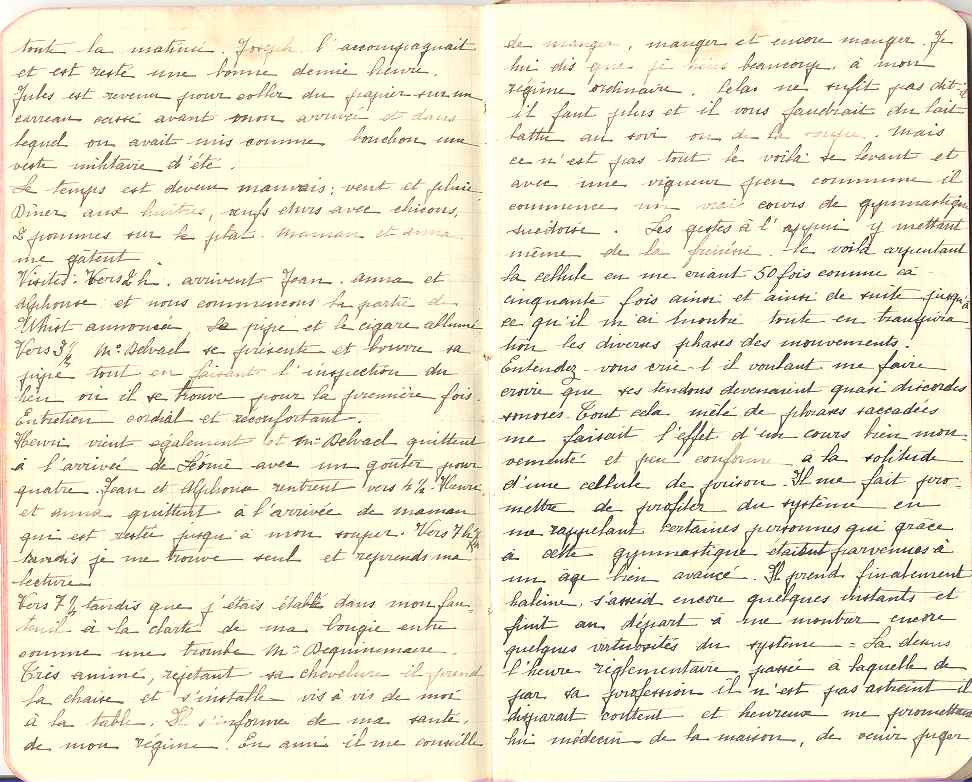 tout la matinée. Joseph l'accompagnait
et est resté une bonne demie heure.
Jules est revenu pour coller du papier sur un
carreau cassé avant mon arrivée et dans
lequel on avait mis comme bouchon une
veste militaire d'été.
Le temps est devenu mauvais; vent et pluie
Diner aux huitres, œufs durs avec chicons,
2 pommes sur le plat. Maman et Anna
me gâtent.
Visites: Vers 2 h. arrivent Jean, Anna et
Alphonse et nous commencons la partie de
Whist annoncée, la pipe et le cigare allumé
Vers 3 ½ Mr Delvael se présente et bourre sa
pipe tout en faisant l'inspection du
lieu où il se trouve pour la première fois.
Entretien cordial et réconfortant.
Henri vient également et Mr Delvael quittent
à l'arrivée de Léonie avec un goûter pour
quatre. Jean et Alphonse rentrent vers 4 ½. Henri
et Anna quittent à l'arrivée de maman
qui est resté jusqu'à mon souper. Vers 7 h
tandis je me trouve seul et reprends ma
lecture
Vers 7 ½ tandis que j'étais établi dans mon fau-
teuil à la clarté de ma bougie entre
comme une trombe Mr Dequinnemaere
Très animé, rejetant sa chevelure il prend
la chaise et s'installe vis à vis de moi
à la table. Il s'informe de ma santé,
de mon régime. En ami il me conseille
de manger, manger et encore manger. Je
lui dis que je tiens beaucoup à mon
régime ordinaire. Celas ne sufit pas dit-
il faut plus et il vous faudrait du lait
battu au soir ou de la soupe. Mais
ce n'est pas tout le voilà se levant et
avec une vigueur peu commune il
commence un vrais cours de gymnastique
suédoise. Les gestes à l'appui y mettant
même de la frénésie le voilà arpentant
la cellule en me criant 50 fois comme ca
cinquante fois ainsi et ainsi de suite jusqu'à
ce qu'il m'ai montré tout en transpira
tion les diverses phases des mouvements.
Entendez-vous crie-t-il voulant me faire
croire que ses tendons devenaient quasi discordes
sonores. Tout cela mêlé de phrases saccadées
me faisait l'effet d'un cours bien mou-
vementé et peu conforme a la solitude
d'une cellule de prison. Il me fait pro-
mettre de profiter du système en
me rappelant certaines personnes qui grâce
à cette gymnastique étaient parvenues à
un âge bien avancé. Il prend finalement
haleine, s'assied encore quelques instants et
finit au départ à me montrer encore
quelques virtuosités du système = La dessus
l'heure réglementaire passée à laquelle de
par sa profession il n'est pas astreint il
disparait content et heureux me promettant
lui médecin de la maison, de venir juger